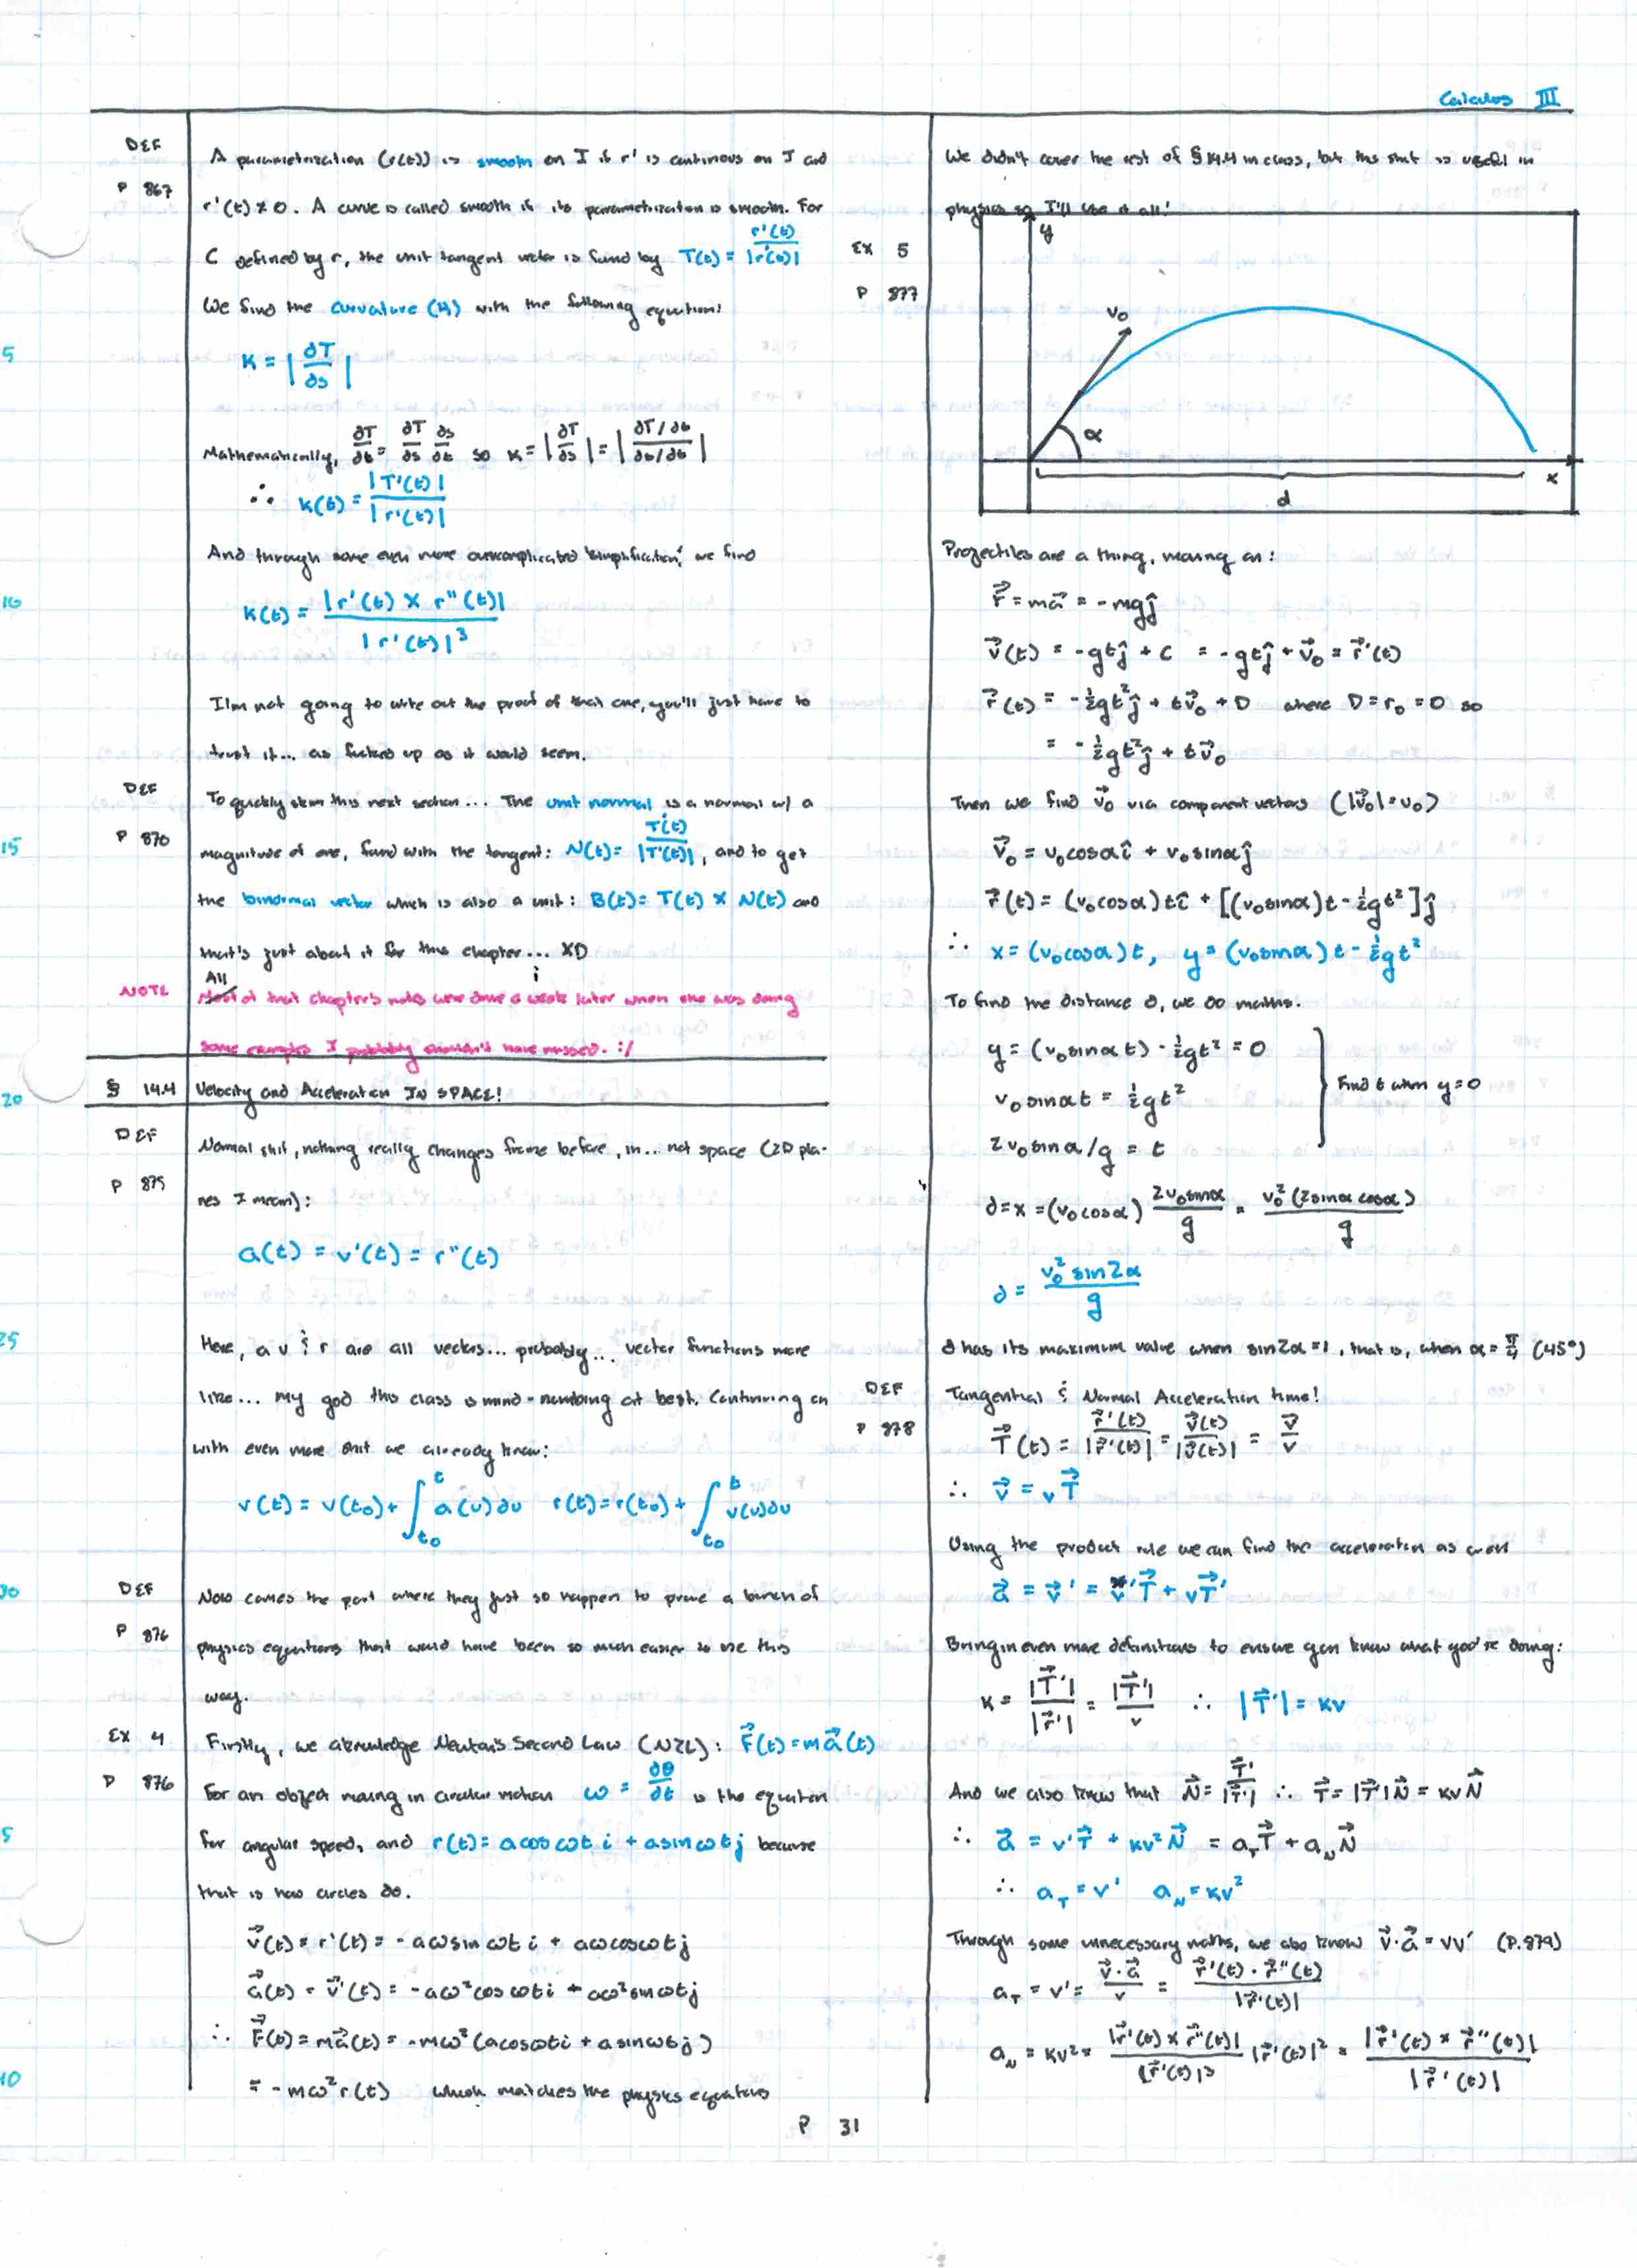 Calculus III
DEF
P 867
A parametrization (r(t)) is smooth on I if r' is continous on I and
r'(t) ≠ 0. A curve is called smooth if its parametrization is smooth. For
C defined by r, the unit tangent vector is found by T(t) = r'(t)/|r'(t)|
We find the curvature (K) with the following equation:
5
K = |∂T/∂s|
Mathematically, ∂T/∂t = ∂T/∂s ∂s/∂t so K = |∂T/∂s| = |∂T/∂t / ∂s/∂t|
∴ K(t) = |T'(t)|/|r'(t)|
And through some even more overcomplicated 'simplification', we find
10
K(t) = |r'(t) × r''(t)| / |r'(t)|³
I'm not going to write out the proof of that one, you'll just have to
trust it... as fucked up as it would seem.
DEF
P 870
To quickly skim this next section... The unit normal is a normal w/ a
15
magnitude of one, found with the tangent: N(t) = T'(t)/|T'(t)|, and to get
the binormal vector which is also a unit: B(t) = T(t) × N(t) and
that's just about it for this chapter... XD
NOTE
All
of that chapter's notes were done a week later when she was doing
some examples I probably shouldn't have missed. :/
20
§ 14.4 Velocity and Acceleration IN SPACE!
DEF
P 875
Normal shit, nothing really changes frome before, in... not space (2D pla-
nes I mean):
a(t) = v'(t) = r''(t)
25
Here, a v & r are all vectors... probably... vector functions more
like... my god this class is mind-numbing at best. Continuing on
with even more shit we already know:
v(t) = v(t₀) + ∫ₜ₀ᵗ a(u)∂u r(t) = r(t₀) + ∫ₜ₀ᵗ v(u)∂u
30
DEF
P 876
Now comes the part where they just so happen to prove a bunch of
physics equations that would have been so much easier to use this
way.
EX 4
P 876
Firstly, we aknowledge Newton's Second Law (N2L): F⃗(t) = ma⃗(t)
For an object moving in circular motion ω = ∂θ/∂t is the equation
5
for angular speed, and r(t) = a cos ωt i + a sin ωt j because
that is how circles do.
v⃗(t) = r'(t) = -aω sin ωt i + aω cos ωt j
a⃗(t) = v⃗'(t) = -aω² cos ωt i + aω² sin ωt j
∴ F⃗(t) = ma⃗(t) = -mω²(a cos ωt i + a sin ωt j)
10
= -mω² r(t) which matches the physics equations
We didn't cover the rest of § 14.4 in class, but this shit is useful in
physics so I'll use it all!
EX 5
P 877
y
v₀
α
x
d
Projectiles are a thing, moving on:
F⃗ = ma⃗ = -mgĵ
v⃗(t) = -gtĵ + C = -gtĵ + v⃗₀ = r⃗'(t)
r⃗(t) = -½gt²ĵ + tv⃗₀ + D where D = r₀ = 0 so
= -½gt²ĵ + tv⃗₀
Then we find v⃗₀ via component vectors (|v⃗₀| = v₀)
v⃗₀ = v₀cosαî + v₀sinαĵ
r⃗(t) = (v₀cosα)tî + [(v₀sinα)t - ½gt²]ĵ
∴ x = (v₀cosα)t, y = (v₀sinα)t - ½gt²
To find the distance d, we do maths.
y = (v₀sinαt) - ½gt² = 0
v₀sinαt = ½gt²
Find t when y=0
2v₀sinα/g = t
d = x = (v₀cosα) 2v₀sinα/g = v₀²(2sinαcosα)/g
d = v₀² sin2α / g
d has its maximum value when sin2α = 1, that is, when α = π/4 (45°)
DEF
P 878
Tangential & Normal Acceleration time!
T⃗(t) = r⃗'(t)/|r⃗'(t)| = v⃗(t)/|v⃗(t)| = v⃗/v
∴ v⃗ = vT⃗
Using the product rule we can find the acceleration as well
a⃗ = v⃗' = v'T⃗ + vT⃗'
Bring in even more definitions to ensure you know what you're doing:
K = |T⃗'|/|r⃗'| = |T⃗'|/v ∴ |T⃗'| = Kv
And we also know that N⃗ = T⃗'/|T⃗'| ∴ T⃗ = |T⃗'|N⃗ = KvN⃗
∴ a⃗ = v'T⃗ + Kv²N⃗ = a_T T⃗ + a_N N⃗
∴ a_T = v' a_N = Kv²
Through some unnecessary maths, we also know v⃗·a⃗ = vv' (P.879)
a_T = v' = v⃗·a⃗/v = r⃗'(t)·r⃗''(t)/|r⃗'(t)|
a_N = Kv² = |r⃗'(t) × r⃗''(t)|/|r⃗'(t)|³ |r⃗'(t)|² = |r⃗'(t) × r⃗''(t)|/|r⃗'(t)|
P 31